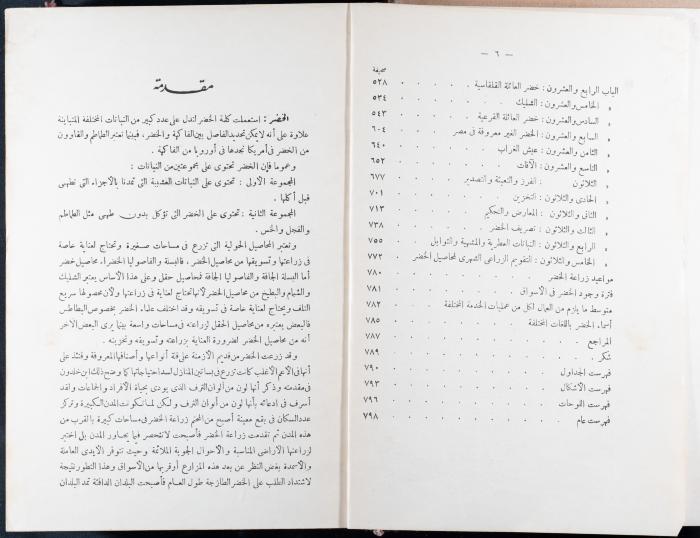 — ٦ —
صحيفة
الباب الرابع والعشرون : خضر العائلة القلقاسية . . . . . ٥٢٨
» الخامس والعشرون : الشليك . . . . . ٥٣٤
» السادس والعشرون : خضر العائلة القرعية . . . . . ٥٤٣
» السابع والعشرون : الخضر الغير معروفة فى مصر . . . . ٦٠٤
» الثامن والعشرون : عيش الغراب . . . . . ٦٤٠
» التاسع والعشرون : الآفات . . . . . ٦٥٢
» الثلاثون : الفرز والتعبئة والتصدير . . . . . ٦٧٧
» الحادى والثلاثون : التخزين . . . . . ٧٠١
» الثانى والثلاثون : المعارض والتحكيم . . . . . ٧١٣
» الثالث والثلاثون : تصريف الخضر . . . . . ٧٣٨
» الرابع والثلاثون : النباتات العطرية والمشهية والتوابل . . . ٧٥٥
» الخامس والثلاثون : التقويم الزراعى الشهرى لمحاصيل الخضر . . ٧٧٢
مواعيد زراعة الخضر . . . . . ٧٨٠
فترة وجود الخضر فى الأسواق . . . . . ٧٨١
متوسط ما يلزم من العمال لكل من عمليات الخدمة المختلفة . . . ٧٨٢
أسماء الخضر باللغات المختلفة . . . . . ٧٨٥
المراجع . . . . . ٧٨٧
شكر . . . . . ٧٨٩
فهرست الجداول . . . . . ٧٩٠
فهرست الأشكال . . . . . ٧٩٣
فهرست اللوحات . . . . . ٧٩٦
فهرست عام . . . . . ٧٩٨
مقدمة
الخضر : إستعملت كلمة الخضر لتدل على عدد كبير من النباتات المختلفة المتباينة
علاوة على أنه لا يمكن تحديد الفاصل بين الفاكهة والخضر، فبينما نعتبر الطماطم والقاوون
من الخضر فى أمريكا نجدها فى أوروبا من الفاكهة .
وعموما فإن الخضر تحتوى على مجموعتين من النباتات :
المجموعة الأولى : تحتوى على النباتات العشبية التى تمدنا بالأجزاء التى تطهى
قبل أكلها .
المجموعة الثانية : تحتوى على الخضر التى تؤكل بدون طهى مثل الطماطم
والفجل والخس .
وتعتبر المحاصيل الحولية التى تزرع فى مساحات صغيرة وتحتاج لعناية خاصة
فى زراعتها وتسويقها من محاصيل الخضر . فالبسلة والفاصوليا الخضراء محاصيل خضر
أما البسلة الجافة والفاصوليا الجافة فمحاصيل حقل وعلى هذا الأساس يعتبر الشليك
والشمام والبطيخ من محاصيل الخضر لأنها تحتاج لعناية فى زراعتها ولأن محصولها سريع
التلف ويحتاج لعناية خاصة فى تسويقه وقد اختلف علماء الخضر بخصوص البطاطس
فالبعض يعتبره من محاصيل الحقل لزراعته فى مساحات واسعة بينما يرى البعض الآخر
أنه من محاصيل الخضر لضرورة العناية بزراعته وتسويقه وتخزينه .
وقد زرعت الخضر من قديم الأزمنة على قلة أنواعها وأصنافها المعروفة وقتئذ على
أنها فى الأعم الأغلب كانت تزرع فى بساتين المنازل لسد احتياجاتها كما وضح ذلك ابن خلدون
فى مقدمته وذكر أنها لون من ألوان الترف الذى يودى بحياة الأفراد والجماعات ولقد
أسرف فى ادعائه بأنها لون من ألوان الترف ولكن لما تكونت المدن الكبيرة وتركز
عدد السكان فى بقع معينة أصبح من المحتم زراعة الخضر فى مساحات كبيرة بالقرب من
هذه المدن ثم تقدمت زراعة الخضر فأصبحت لا تنحصر فيما يجاور المدن بل اختير
لزراعتها الأراضى المناسبة والأحوال الجوية الملائمة وحيث تتوفر الأيدى العاملة
والأسمدة بغض النظر عن بعد هذه المزارع أو قربها من الأسواق وهذا التطور نتيجة
لاشتداد الطلب على الخضر الطازجة طول العام فأصبحت البلدان الدافئة تمد البلدان